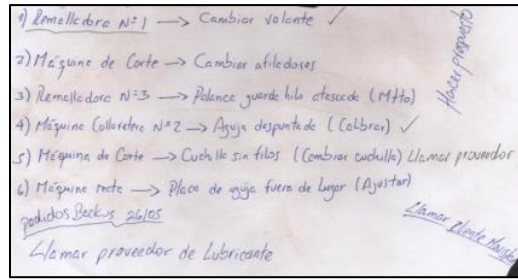 1) Remalladora N=1 → Cambiar volante ✓
2) Máquina de Corte → Cambiar afiladores
3) Remalladora N=3 → Palanca guarda hilo atascada (Mtto)
4) Máquina Collaretera N=2 → Aguja despuntada (Calibrar) ✓
5) Máquina de Corte → Cuchilla sin filos (Cambiar cuchilla) Llamar proveedor
6) Máquina recta → Placa de aguja fuera de lugar (Ajustar)
Hacer
pedidos Backus 26/05
Llamar
Llamar proveedor de Lubricante